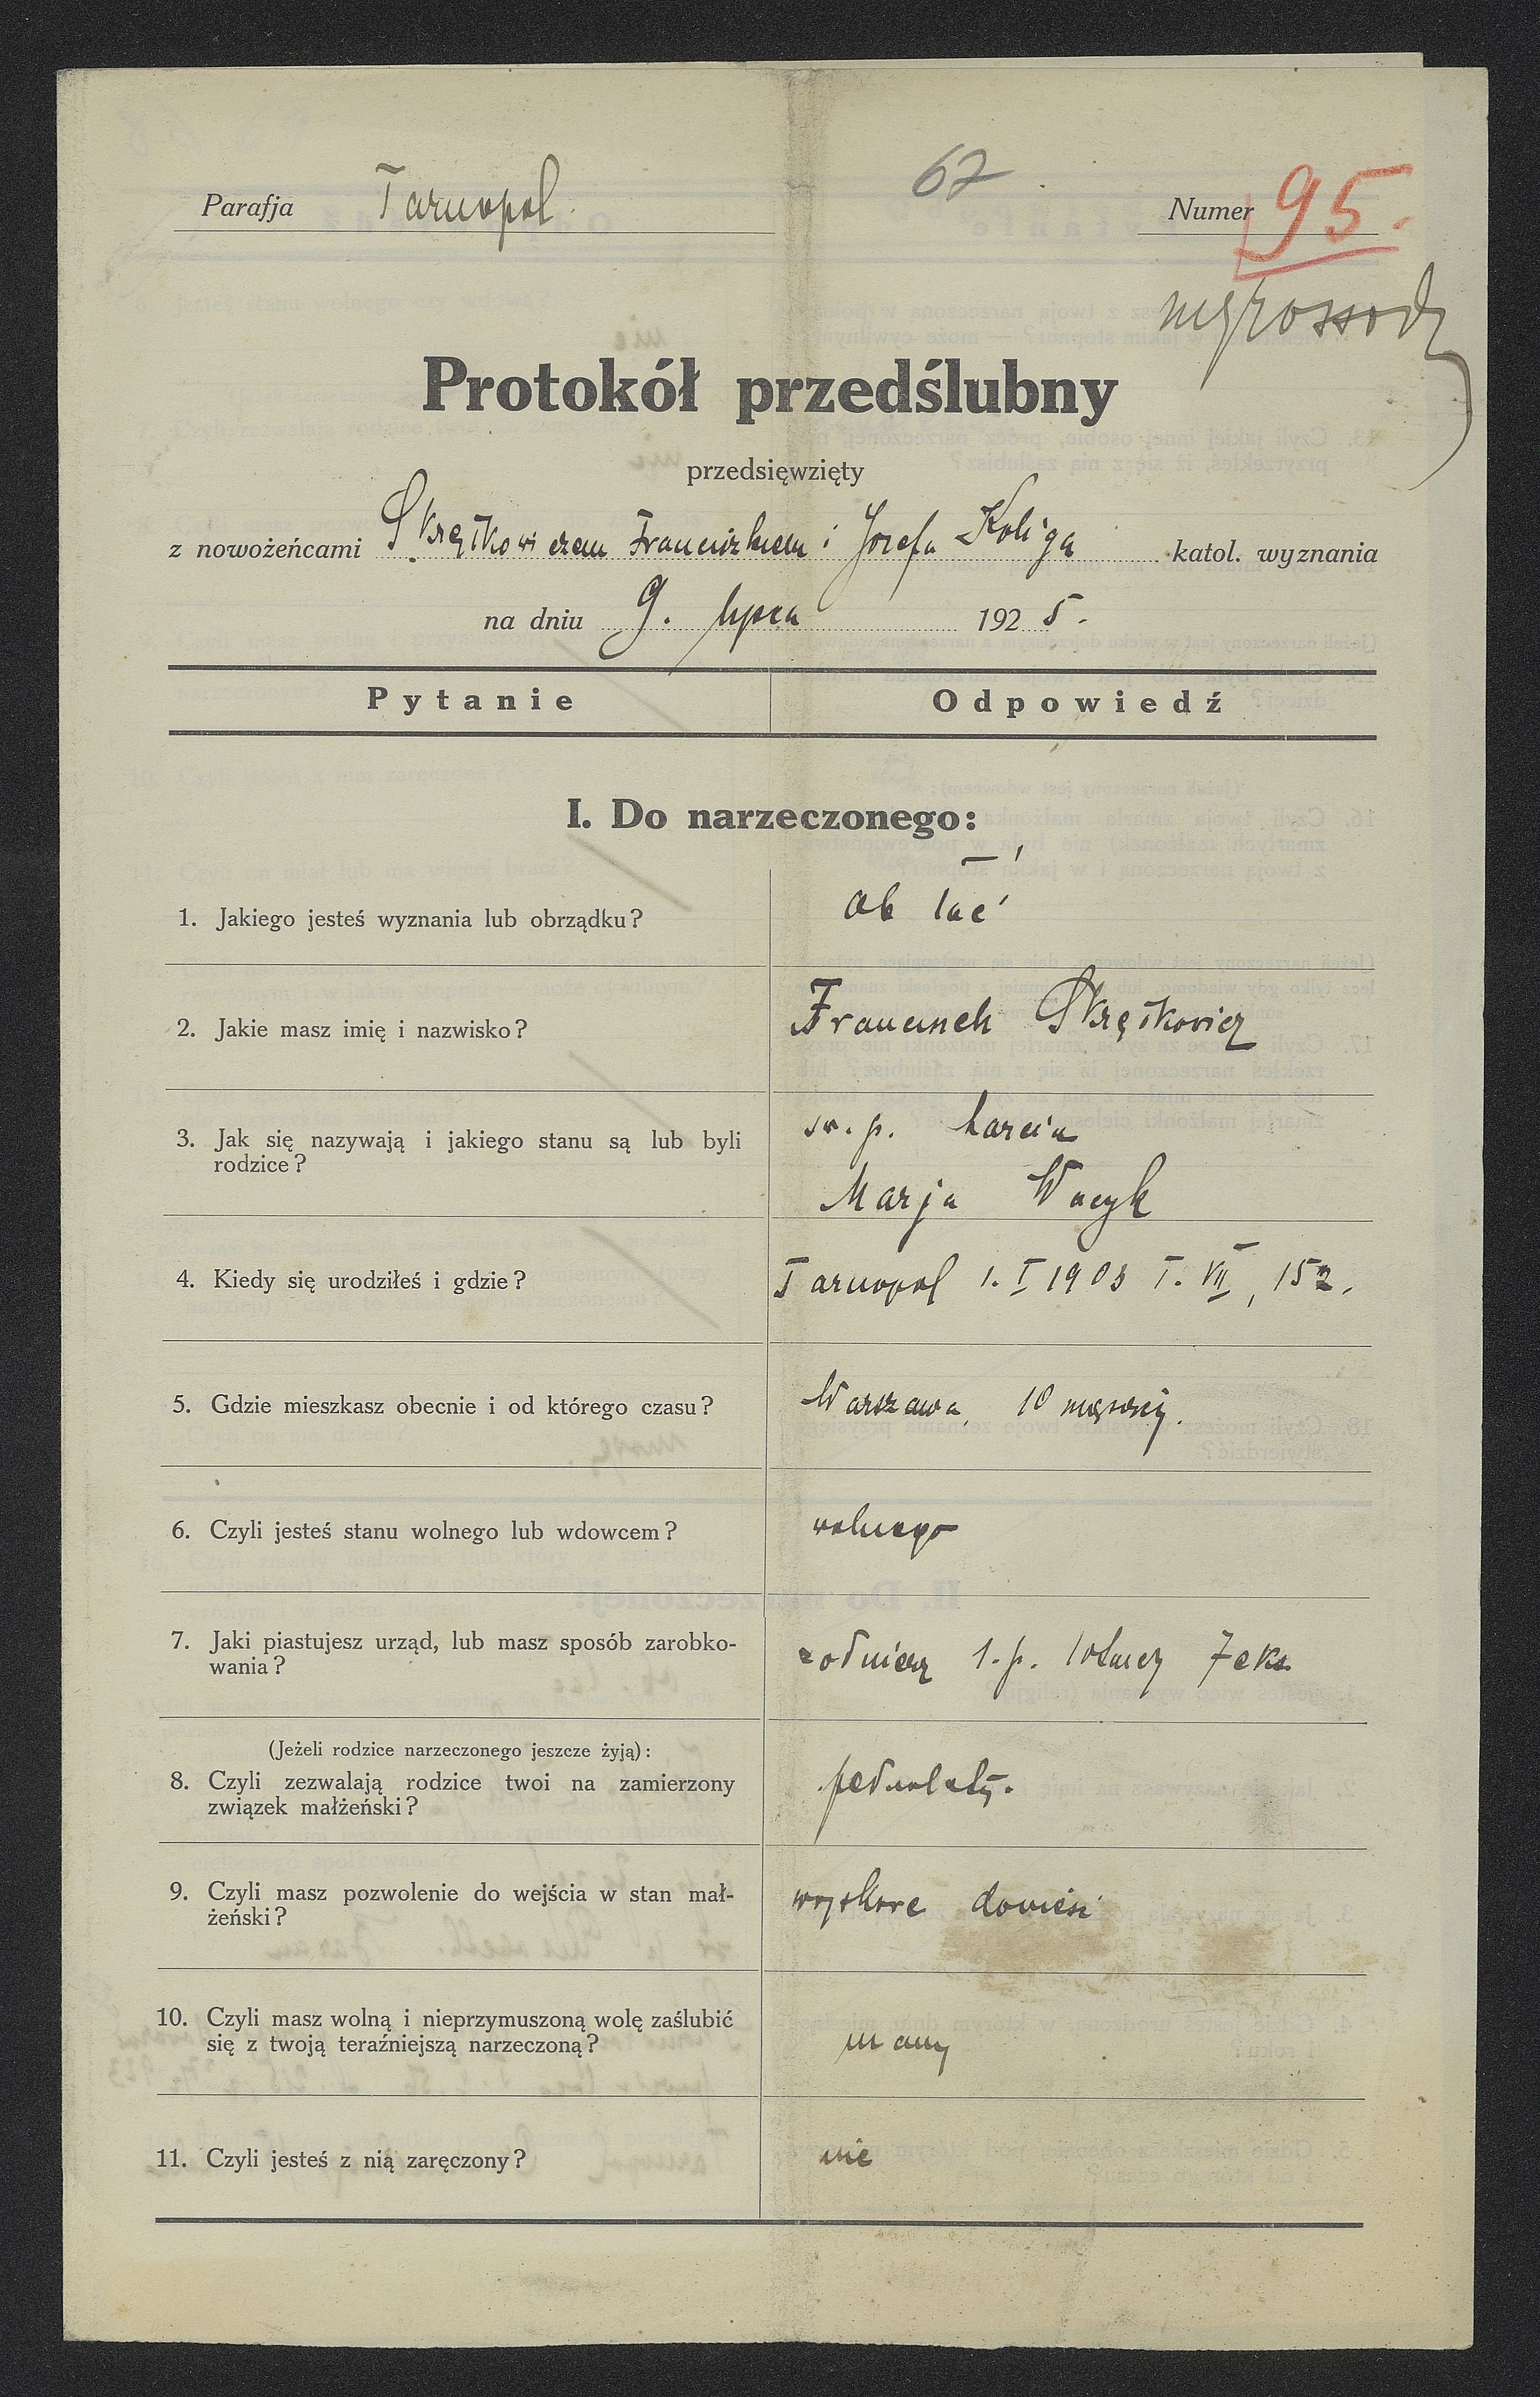 Parafja Tarnopol 67 Numer 95.
Protokół przedślubny
przedsięwzięty
z nowożeńcami Skrętkowiczem Franciszkiem i Józefa Koliga katol. wyznania
na dniu 9. lipca 1925.
Pytanie Odpowiedź
I. Do narzeczonego:
1. Jakiego jesteś wyznania lub obrządku? ob łać
2. Jakie masz imię i nazwisko? Franciszek Skrętkowicz
3. Jak się nazywają i jakiego stanu są lub byli
rodzice?
św. p. Marcin
Marja Wacyk
4. Kiedy się urodziłeś i gdzie? Tarnopol 1. I 1903 T. VII, 152.
5. Gdzie mieszkasz obecnie i od którego czasu? Warszawa, 10 miesięcy.
6. Czyli jesteś stanu wolnego lub wdowcem? wolnego
7. Jaki piastujesz urząd, lub masz sposób zarobko-
wania?
żołnierz 1. p. lotniczy
(Jeżeli rodzice narzeczonego jeszcze żyją):
8. Czyli zezwalają rodzice twoi na zamierzony
związek małżeński?
pełnoletni.
9. Czyli masz pozwolenie do wejścia w stan mał-
żeński?
10. Czyli masz wolną i nieprzymuszoną wolę zaślubić
się z twoją teraźniejszą narzeczoną?
mamy
11. Czyli jesteś z nią zaręczony? nie